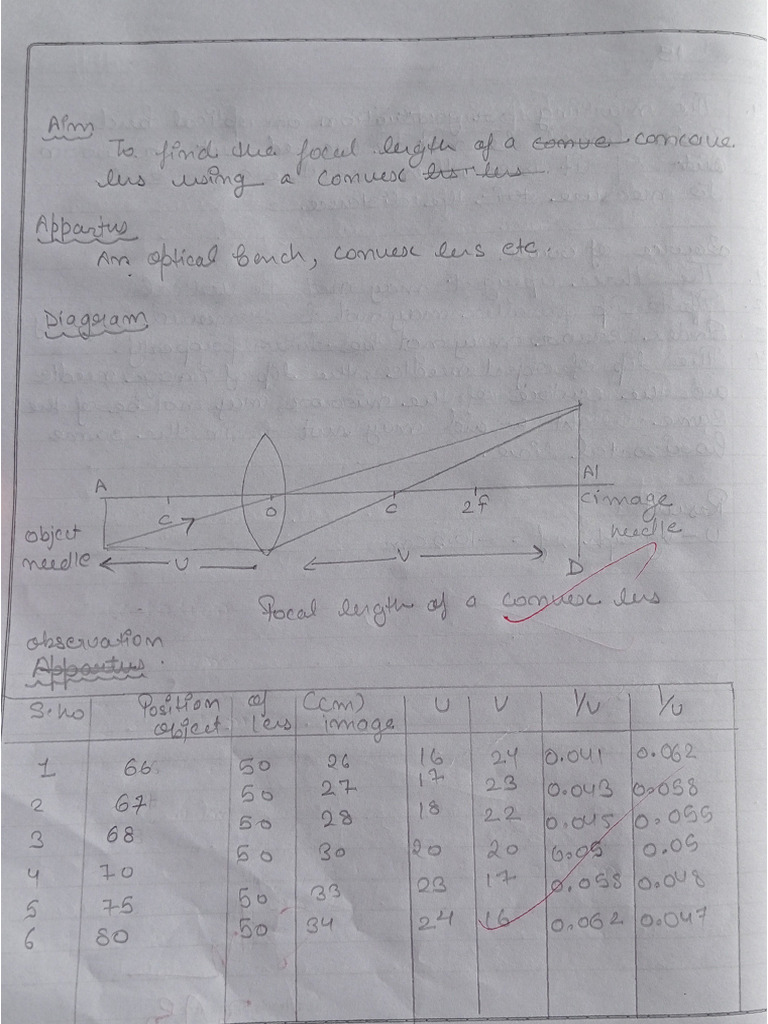 Aim
To find the focal length of a conve concave
lens using a convex lens lens
Appartus
An optical bench, convex lens etc.
Diagram
A A1
C O C 2f (image
needle
object
needle U V D
Focal length of a convex lens
observation
Appartus
S.no Position of (cm) U V 1/V 1/U
object lens image
1 66 50 26 16 24 0.041 0.062
2 67 50 27 17 23 0.043 0.058
3 68 50 28 18 22 0.045 0.055
4 70 50 30 20 20 0.05 0.05
5 75 50 33 23 17 0.058 0.048
6 80 50 34 24 16 0.062 0.047